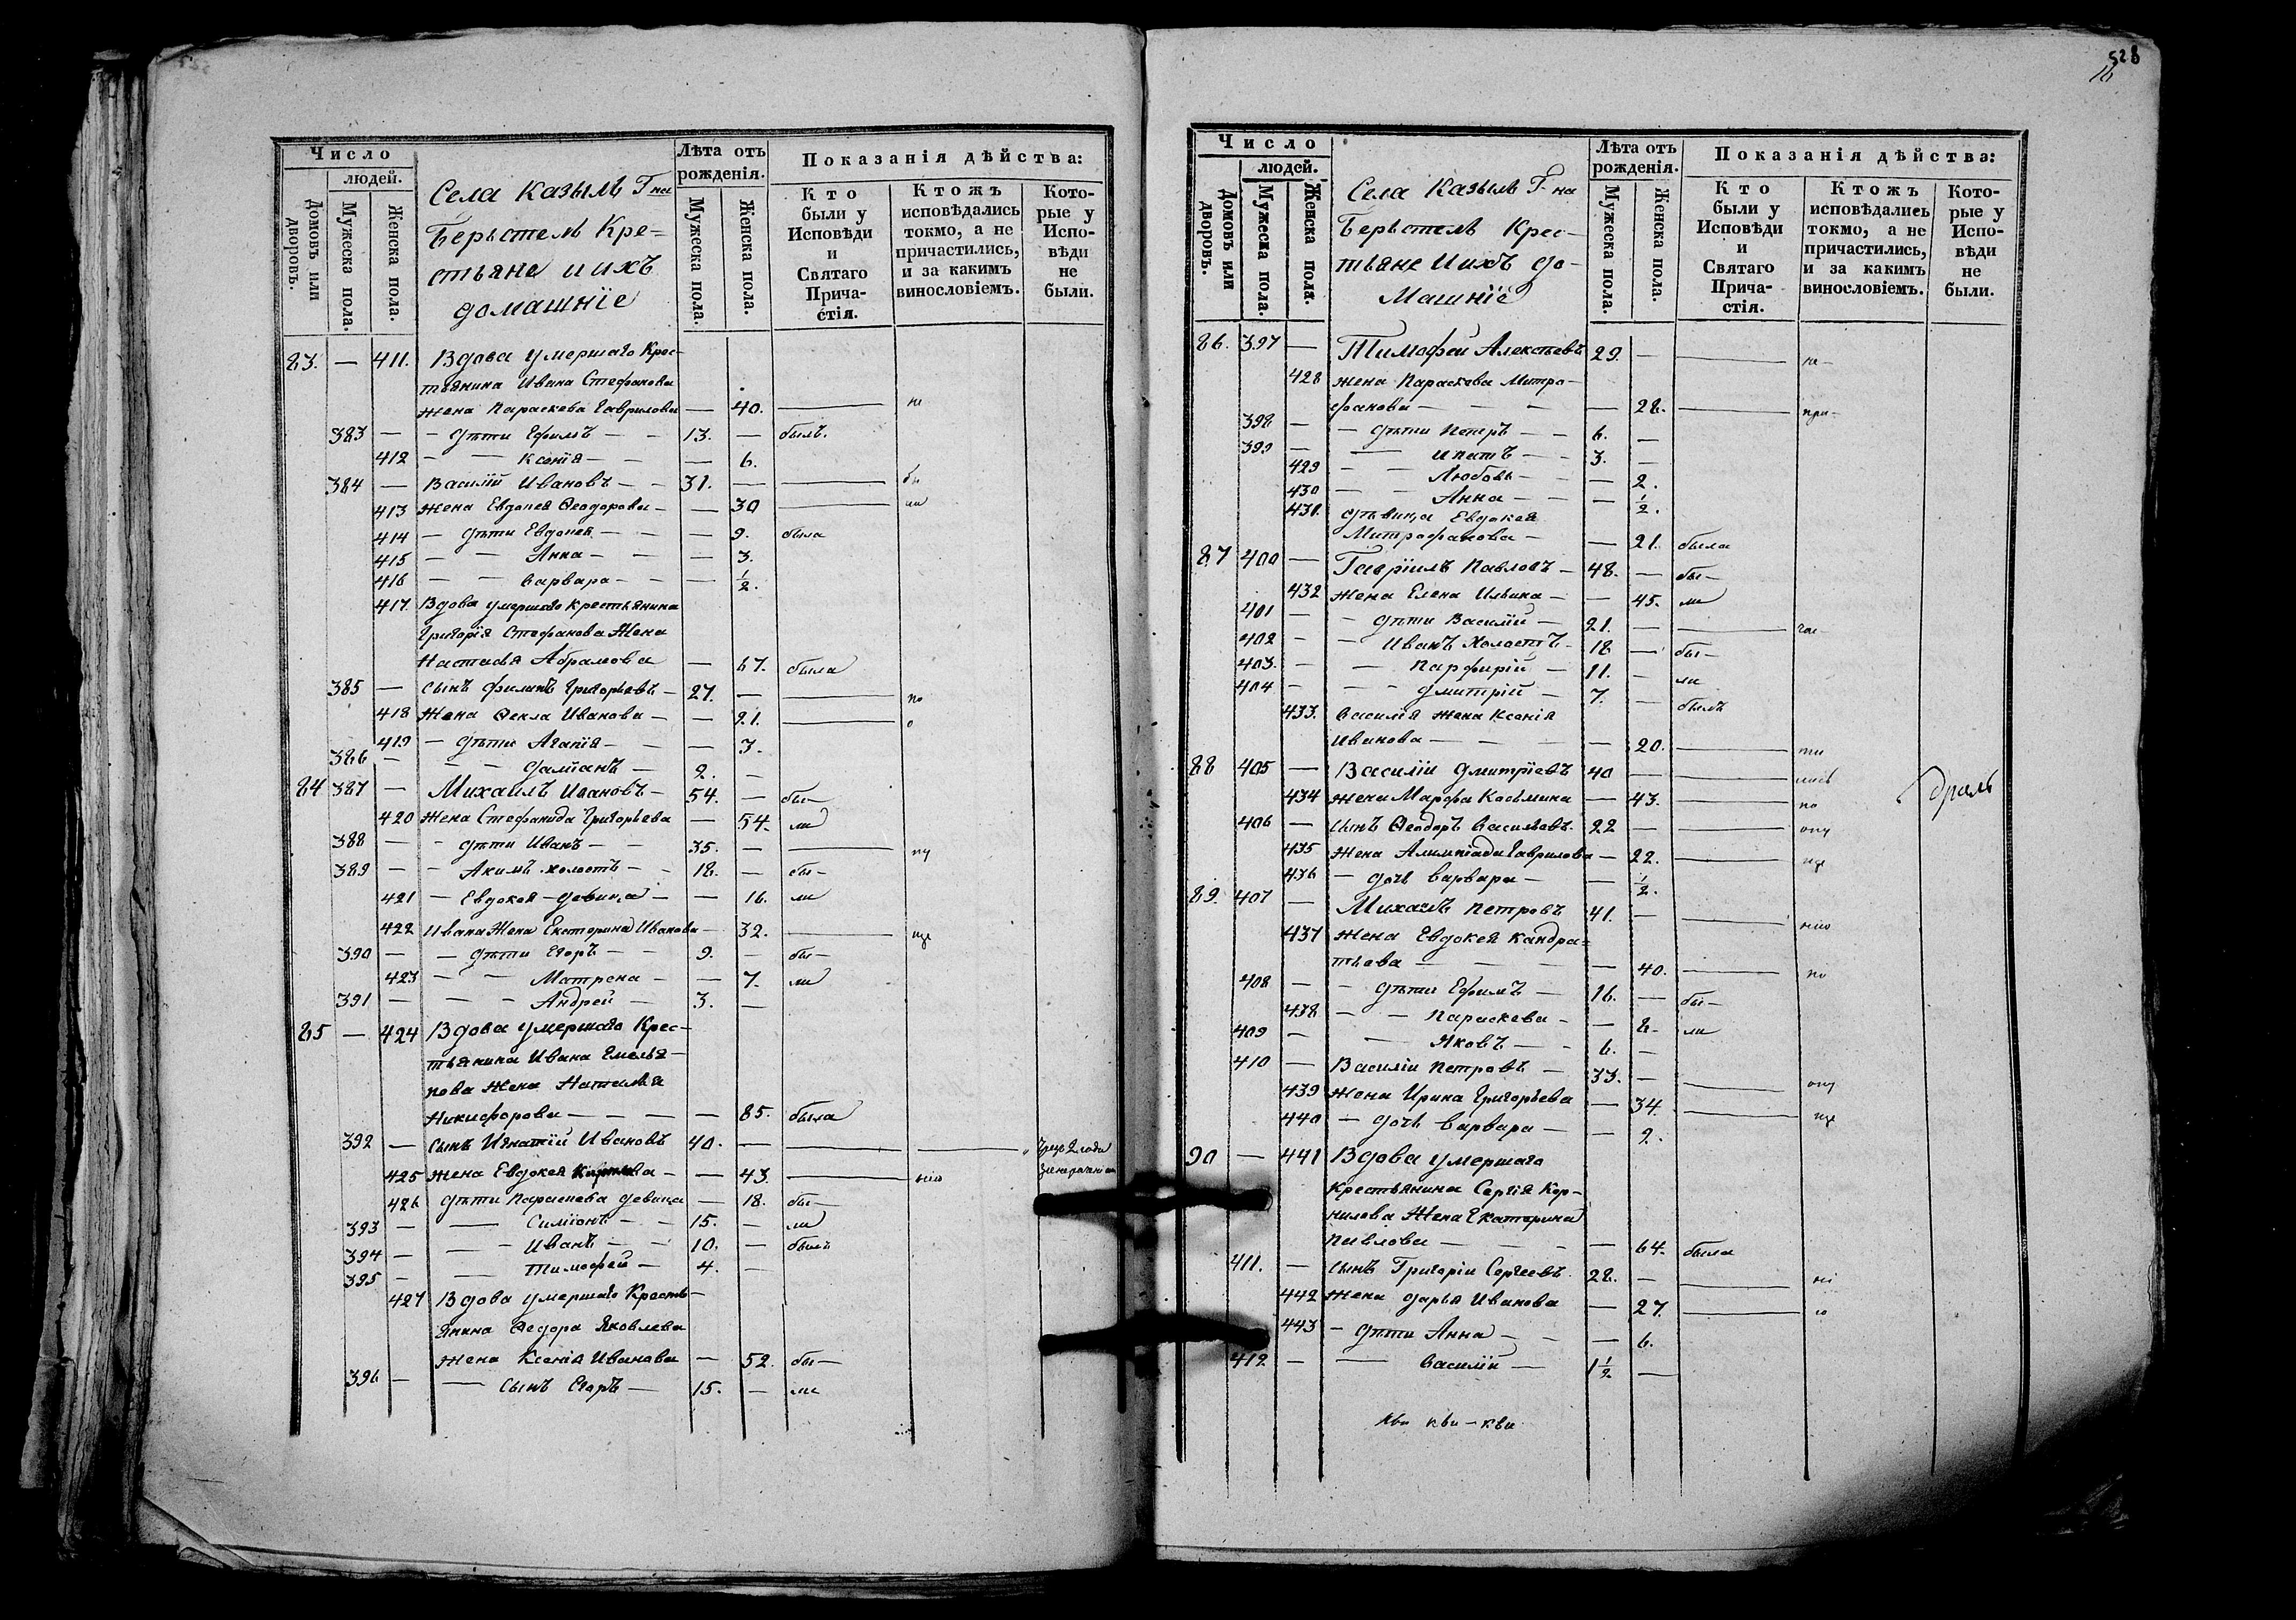 528
16
Число
людей.
Домовъ или дворовъ.
Мужеска пола.
Женска пола.
Села Казылѣ Гна
Берьстелѣ Кре=
стьяне и ихъ
домашніе
Лѣта отъ рожденія.
Мужеска пола.
Женска пола.
Показанія дѣйства:
Кто были у Исповѣди и Святаго Прича-стія.
Ктожъ исповѣдались токмо, а не причастились, и за какимъ винословіемъ.
Кото-рые у Испо-вѣди не были.
83. — 411. Вдова умершаго Крес-
тьянина Ивана Стефанова
жена Параскева Гаврилова — 40. — не
383 — — дѣти Ефимъ — — 13. — былъ.
412 — — Ксенія — — — 6.
384 — Василій Ивановъ — — 31. — — бы
413 жена Евдокея Ѳеодорова — — 30 — ли
414 — дѣти Евдокея — — — 9. была
415 — — Анна — — — 3.
416 — — Варвара — — — 1/2.
417. Вдова умершаго крестьянина
Григорія Стефанова Жена
Настасья Абрамова — 67. была
385 — сынъ Филипъ Григорьевъ — 27. — — по
418 Жена Ѳекла Иванова — — 21. — о
419 — дѣти Агапія — — — 3.
386 — — — Даміанъ — 2. —
84 387 — Михаилъ Ивановъ — 54. — бы—
420 Жена Стефанида Григорьева — 54. ли
388 — — дѣти Иванъ — — 35. — — пу
389 — — Акимъ холостъ — — 18. — бы—
421 — Евдокея — девица — — 16. ли
422 Ивана Жена Екатерина Иванова — 32. — ще
390 — — дѣти Егоръ — — 9. — бы—
423 — — Матрена — — 7. ли
391 — — — Андрей — 3. —
85 — 424 Вдова умершаго Крес-
тьянина Ивана Емелья-
нова Жена Наталья
Никифорова — — — — 85. была
392 — сынъ Игнатій Ивановъ 40. —
425 жена Евдокея — — 43. — нію
426 дѣти Параскева девица — 18. бы—
393 — — Симіонъ — — 15. — ли
394 — — — Иванъ — — 10. — былъ
395 — — Тимофей — 4. —
427 Вдова умершаго Кресть-
янина Ѳедора Яковлева
жена Ксенія Иванова — 52. бы—
396 — — Сынъ Егоръ — 15. — ли
Число
людей.
Домовъ или дворовъ.
Мужеска пола.
Женска пола.
Села Казылѣ Г-на
Берьстелѣ Крес-
тьяне и ихъ до-
машніе
Лѣта отъ рожденія.
Мужеска пола.
Женска пола.
Показанія дѣйства:
Кто были у Исповѣди и Святаго Прича-стія.
Ктожъ исповѣдались токмо, а не причастились, и за какимъ винословіемъ.
Кото-рые у Испо-вѣди не были.
86. 397 — Тимофей Алексѣевъ 29. — — не—
428 жена Параскева Митро-
фанова — — — — 28. — при—
398 — — дѣти Петръ — — 6. —
399 — — Ипатъ — — 3. —
429 — — Любовь — — — 2.
430 — — Анна — — — 1/2.
431. дѣвица Евдокея
Митрофанова — — 21. была
87 400 — Гавріилъ Павловъ — 48. — бы—
432 жена Елена Ильина — — 45. ли
401 — — дѣти Василій — 21. — — час—
402 — — Иванъ Холостъ — 18 — бы—
403. — — Парфирій — 11. — ли
404 — — — Дмитрій — 7. — былъ
433. Василія жена Ксенія
Иванова — — — — 20. — ти
88 405 — Василіи Дмитріевъ 40 — — лись
434 жена Марфа Косьмина — 43. — по
406 — сынъ Ѳеодоръ Васильевъ. 22 — — опу
435 Жена Алимпіада Гаврилова — 22. — ще
436 — дочь Варвара — — 1/2.
89. 407 — Михаилъ Петровъ 41. — — нію
437 жена Евдокея Кандра=
тьева — — — — 40. — по
408 — — дѣти Ефимъ — 16. — бы—
438 — — Параскева — — 8. ли
409 — — Яковъ — — 6. —
410 — Василіи Петровъ — 33. — — опу
439 жена Ирина Григорьева — 34. — ще
440 — дочь Варвара — — 2.
90 — 441 Вдова умершаго
Крестьянина Сергія Кор-
нилова Жена Екатерина
Павлова — — — — 64. была
411. — сынъ Григоріи Сергеевъ 28. — — ні
442 жена Дарья Иванова — 27. — ю
443 — дѣти Анна — — — 6.
412 — — Василій — 1 1/2 —